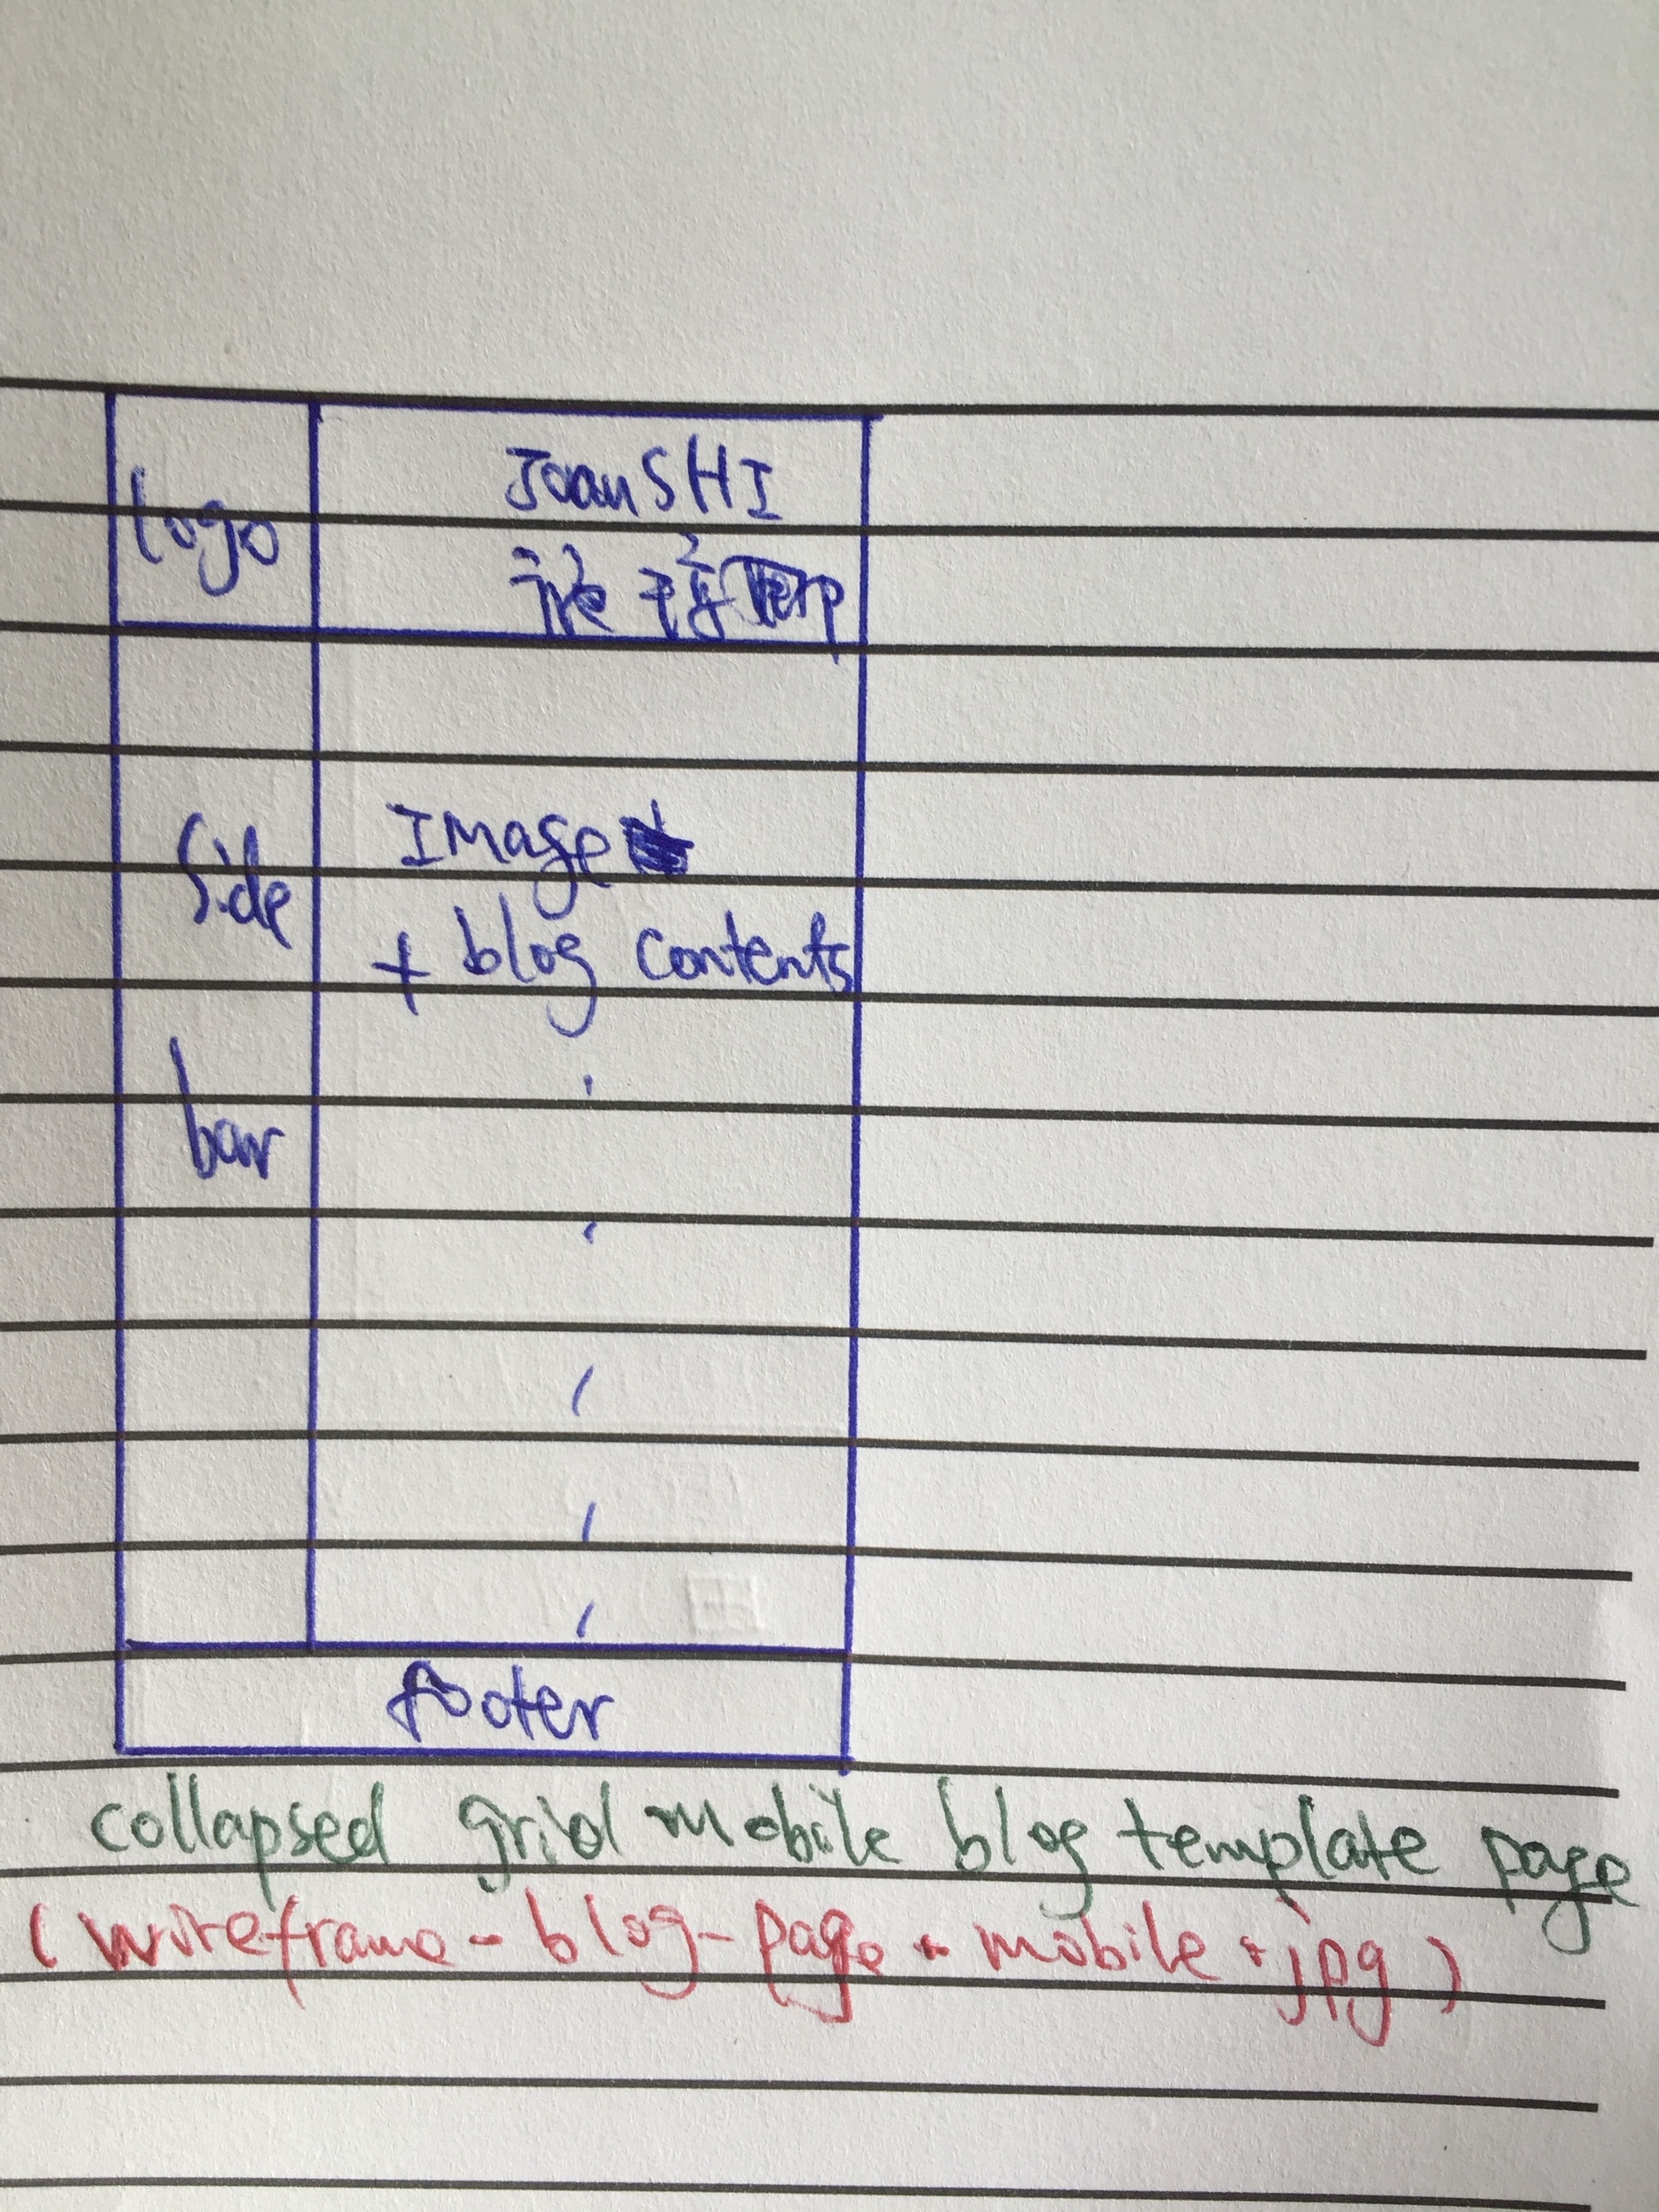 logo
JoanSHI
Side
Image
+ blog contents
bar
footer
collapsed grid mobile blog template page
(wireframe-blog-page-mobile.jpg)